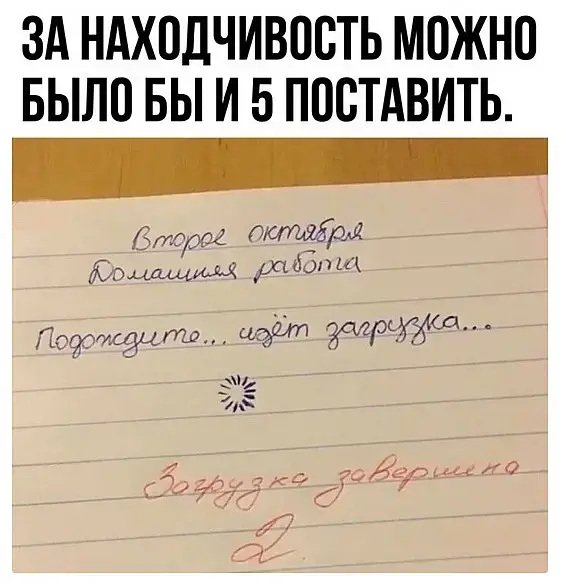 ЗА НАХОДЧИВОСТЬ МОЖНО
БЫЛО БЫ И 5 ПОСТАВИТЬ.
Второе октября
Домашняя работа
Подождите... идёт загрузка...
Загрузка завершена
2.